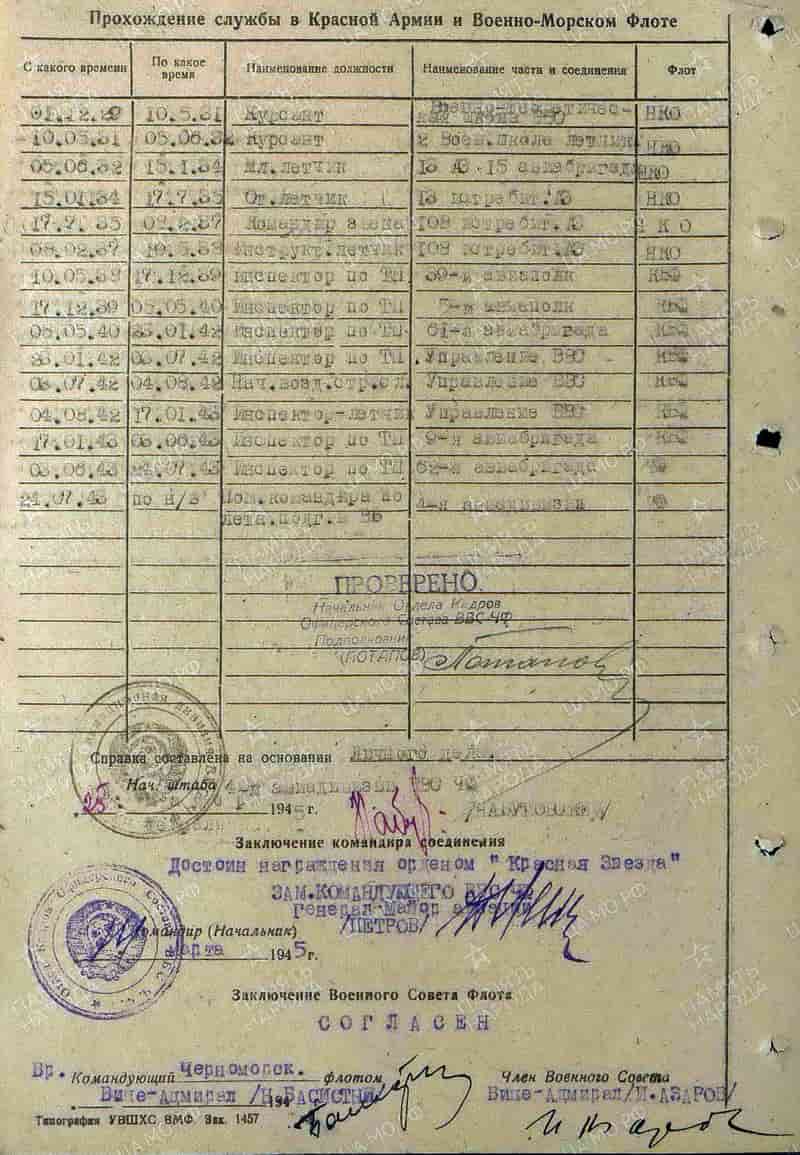 Прохождение службы в Красной Армии и Военно-Морском Флоте
С какого времени По какое время Наименование должности Наименование части и соединения Флот
01.12.29 10.5.31 Курсант НКО
10.05.31 05.06.32 Курсант 2 Воен.школа летчик НКО
05.06.32 15.1.34 Мл.летчик 15 авиабригада НКО
15.01.34 17.7.35 Ст.летчик НКО
17.7.35 08.2.37 Командир звена 108 истребит. НКО
08.02.37 10.5.38 Инструкт.летчик 108 истребит. НКО
10.05.38 17.12.39 Инспектор по ТП 39-й авиаполк КБФ
17.12.39 05.05.40 Инспектор по ТП 5-й авиаполк КБФ
05.05.40 23.01.42 Инспектор по ТП 61-я авиабригада КБФ
23.01.42 03.07.42 Инспектор по ТП Управление ВВС КБФ
03.07.42 04.08.42 Нач.возд.стр.сл. Управление ВВС КБФ
04.08.42 17.01.43 Инспектор-летчик Управление ВВС КБФ
17.01.43 03.06.43 Инспектор по ТП 9-я авиабригада КБФ
03.06.43 24.07.43 Инспектор по ТП 62-я авиабригада ЧФ
24.07.43 по н/в Пом.командира по 4-я авиадивизия ЧФ
лета.подг. и ВБ
ПРОВЕРЕНО.
Начальник Отдела Кадров
Офицерского Состава ВВС ЧФ
Подполковник
(ПОТАПОВ) Потапов
Справка составлена на основании Личного дела.
Нач. штаба 4-й авиадивизии ВВС ЧФ
25 1945 г.
Заключение командира соединения
Достоин награждения орденом "Красная Звезда"
ЗАМ.КОМАНДУЮЩЕГО ВВС ЧФ
Генерал-Майор авиации
/ПЕТРОВ/
Командир (Начальник)
марта 1945 г.
Заключение Военного Совета Флота
СОГЛАСЕН
Вр. Командующий Черноморск. флотом Член Военного Совета
Вице-Адмирал /Н.БАСИСТЫЙ/ 194 Вице-Адмирал/И.АЗАРОВ/
Типография УВШХС ВМФ. Зак. 1457